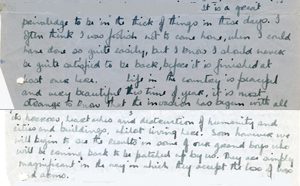 It is a great
privilege to be in the thick of things in these days. I
often think I was foolish not to come home, when I could
have done so quite easily, but I know I should never
be quite satisfied to be back, before it is finished at
last over here. Life in the country is peaceful
and very beautiful this time of year, it is most
strange to know that the invasion has begun with all
its horrors, heartaches and destruction of humanity and
cities and buildings, whilst living here. Soon however we
will begin to see the results in some of our grand boys who
will be coming back to be patched up by us. They are simply
magnificent in the way in which they accept the loss of legs
and arms.